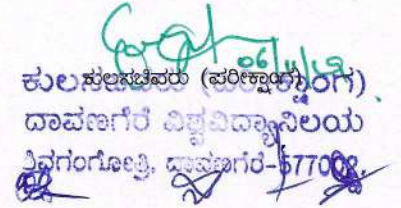 06/11/19
ಕುಲಸಚಿವರು (ಪರೀಕ್ಷಾಂಗ)
ದಾವಣಗೆರೆ ವಿಶ್ವವಿದ್ಯಾನಿಲಯ
ಶಿವಗಂಗೋತ್ರಿ, ದಾವಣಗೆರೆ-577002.